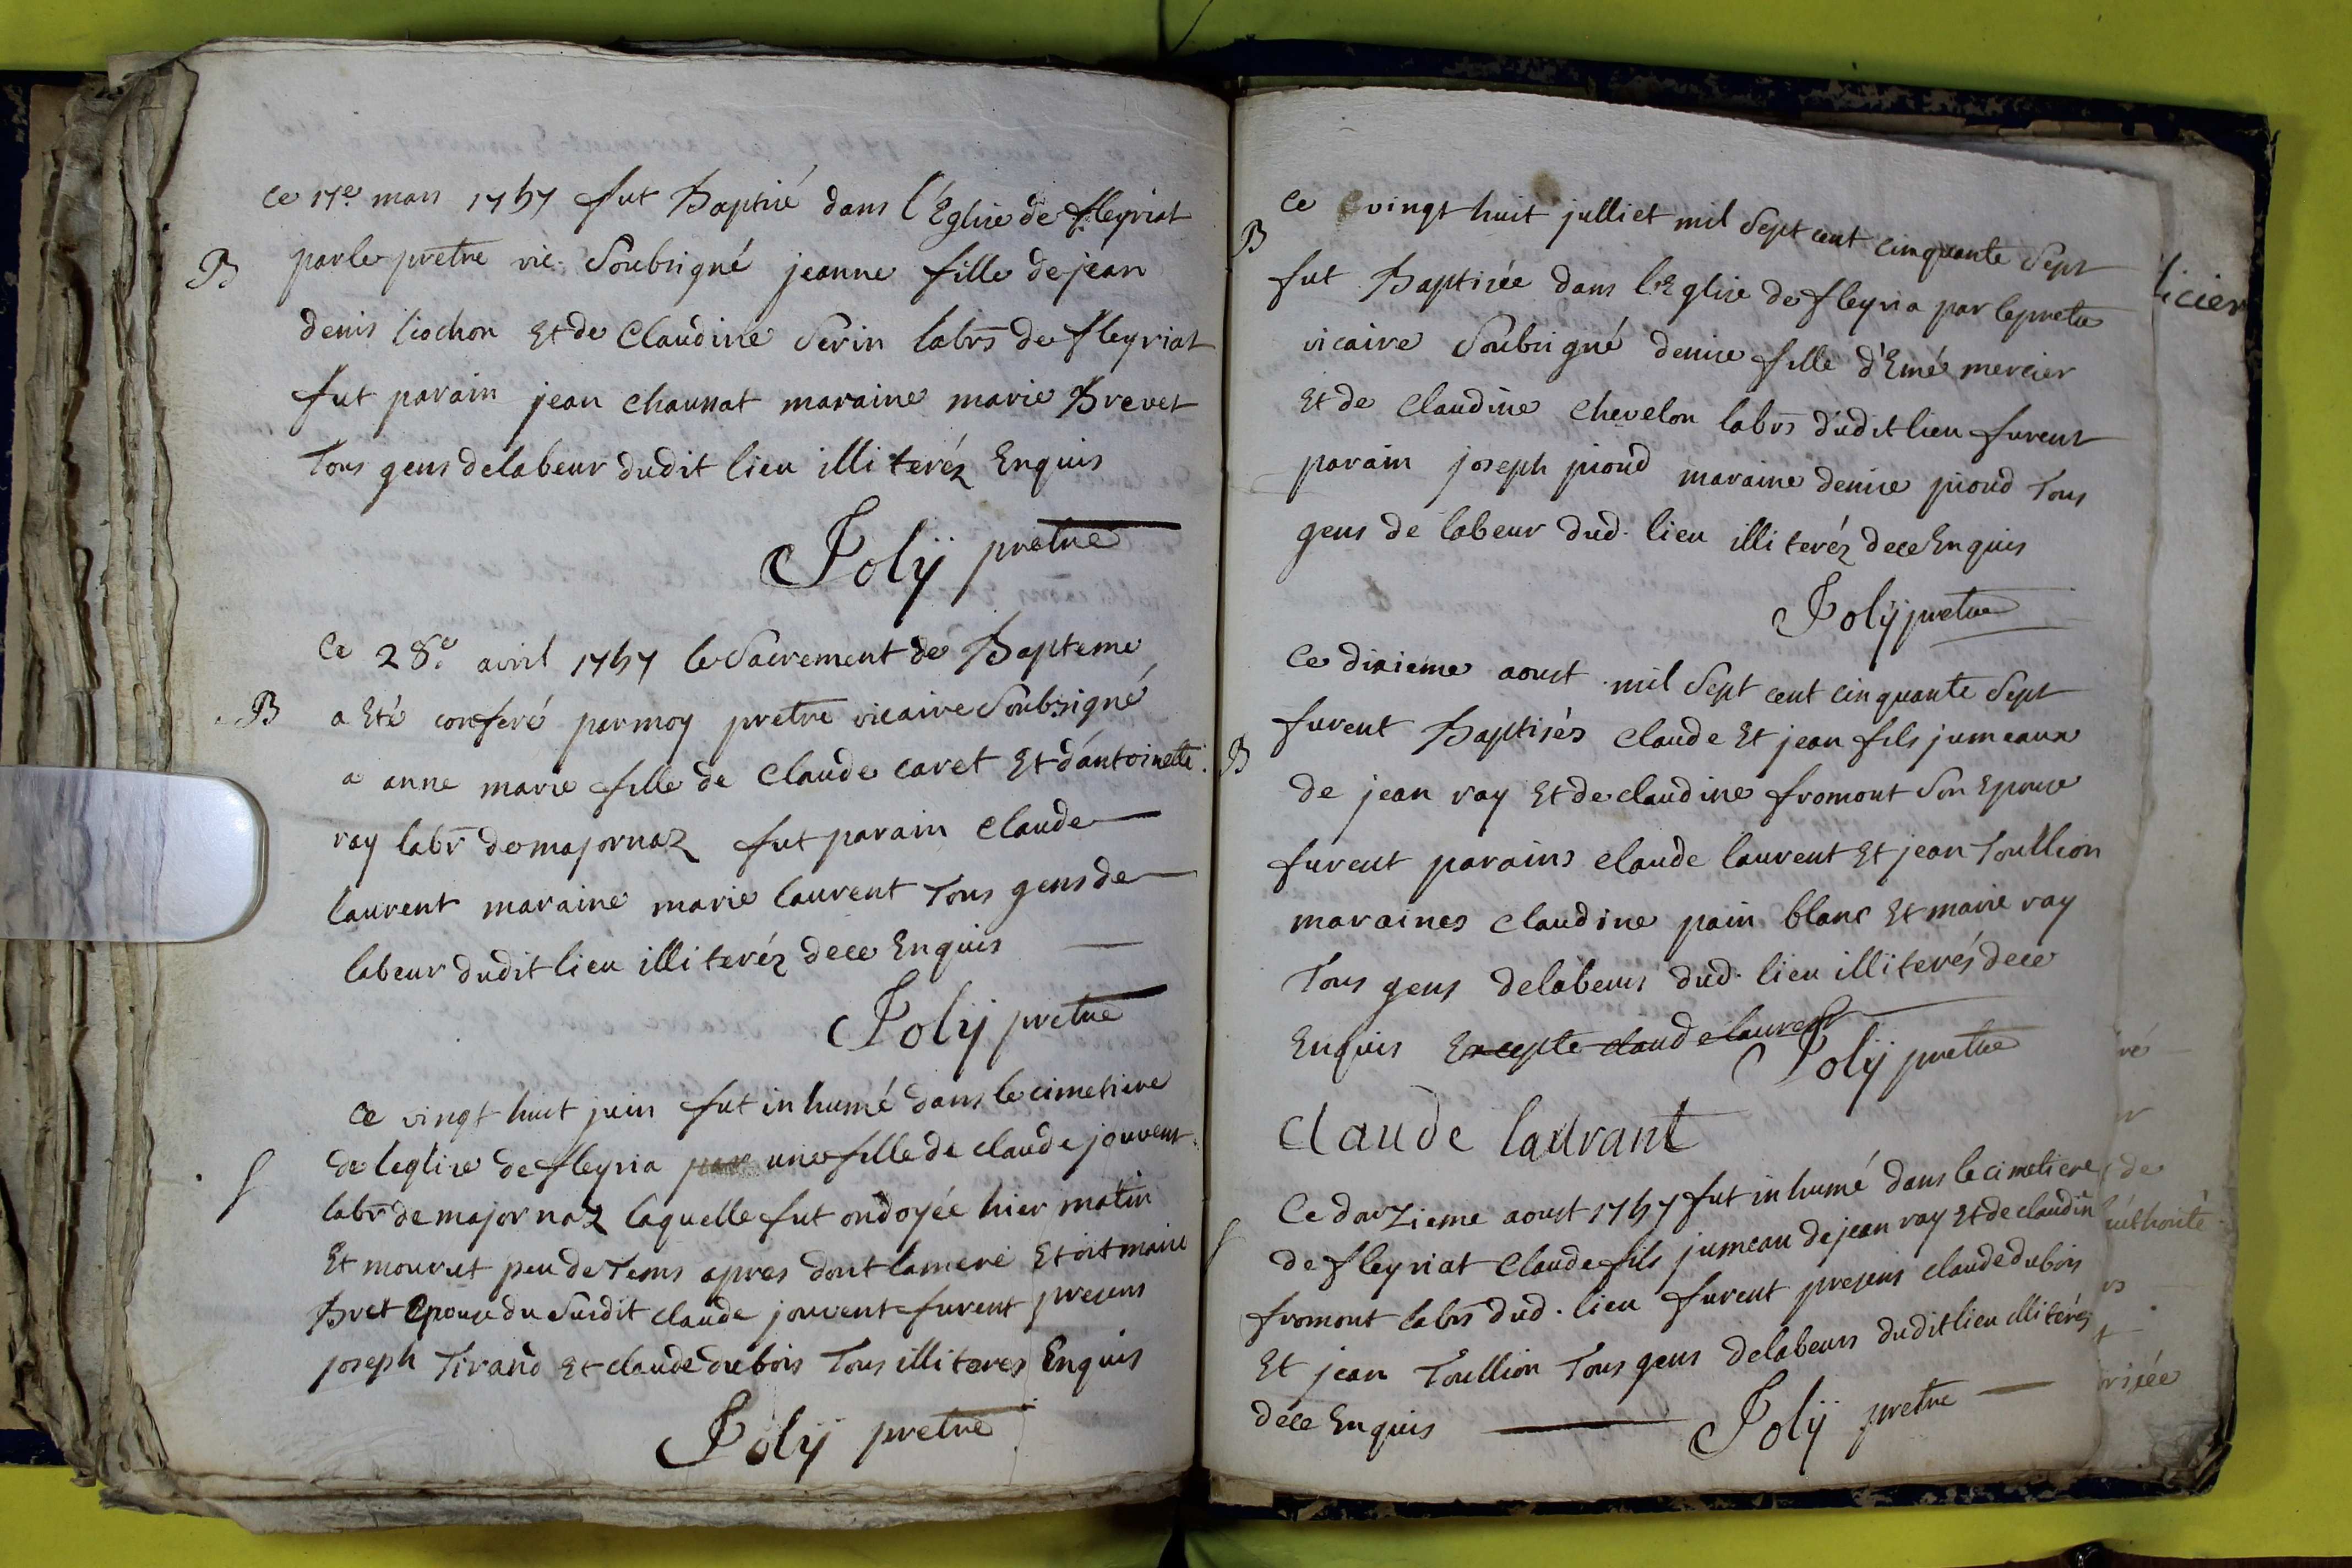 Ce 17e mars 1757 fut Baptisé dans l'Eglise de fleyriat
B
par le pretre vic. Soubsigné jeanne fille de jean
denis liochon Et de Claudine Serin labrs de fleyriat
fut parain jean chaunat maraine marie Brevet
Tous gens de labeur dudit lieu illiterés Enquis
Jolÿ pretre
Ce 28e avril 1757 le Sacrement de Bapteme
B
a Eté conferé par moy pretre vicaire Soubsigné
a anne marie fille de Claude caret Et d'antoinette
ray labr de majornaz fut parain Claude
laurent maraine marie laurent Tous gens de
labeur dudit lieu illiteréz de ce Enquis
Jolÿ pretre
Ce vingt huit juin fut inhumé dans le cimetiere
S
de leglise de fleyria une fille de claude jouvent
labr de majornaz laquelle fut ondoyée hier matin
Et mourut peu de Tems apres dont la mere Etoit marie
Bret Epouse du Susdit claude jouvent furent presens
joseph Tirand Et claude dubois Tous illiteres Enquis
Jolÿ pretre
Ce vingt huit julliet mil Sept cent cinquante Sept
B
fut Baptisée dans l'Eglise de fleyria par le pretre
vicaire Soubsigné denise fille d'Emé mercier
Et de Claudine Chevelon labrs dudit lieu furent
parain joseph pioud maraine denise pioud Tous
gens de labeur dud. lieu illiteréz de ce Enquis
Jolÿ pretre
Ce dixieme aoust mil Sept cent cinquante Sept
furent Baptisés Claude Et jean fils jumeaux
B
de jean ray Et de claudine fromont Son Epouse
furent parains claude laurent Et jean Toullion
maraines Claudine pain blanc Et marie ray
Tous gens de labeurs dud. lieu illiterés de ce
Enquis Excepte claude laurent
Jolÿ pretre
Claude laurant
Ce douzieme aoust 1757 fut inhumé dans le cimetiere
S
de fleyriat Claude fils jumeau de jean ray Et de claudin
fromont labrs dud. lieu furent presens claude dubois
Et jean Toullion Tous gens de labeurs dudit lieu illiterés
de ce Enquis
Jolÿ pretre
licier
ré
de
orisée